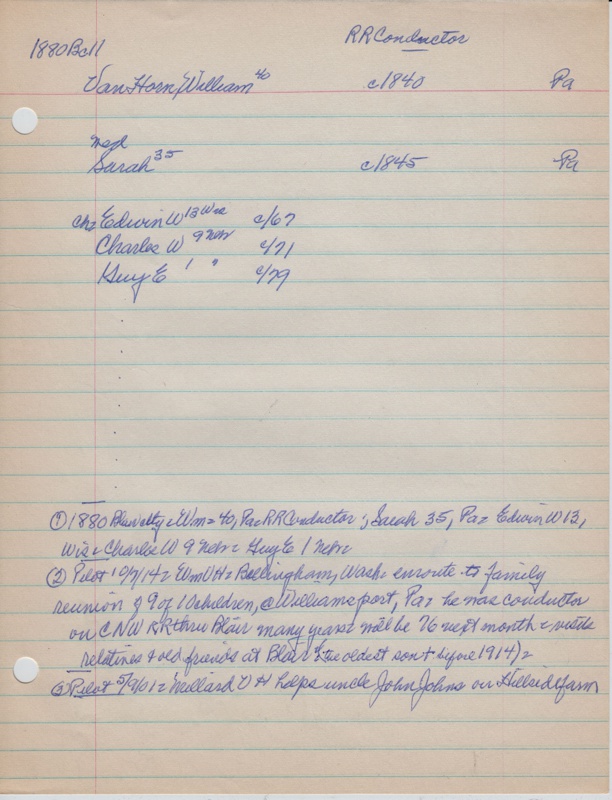 RR Conductor
1880 Bc11
Van Horn, William 40 c1840 Pa
msd
Sarah 35 c1845 Pa
chs Edwin W 13 Wis c/67
Charles W 9 Nebr c/71
Guy E 1 " c/79
① 1880 Blair = Wm = 40, Pa = RR Conductor; Sarah 35, Pa = Edwin W 13,
Wis = Charles W 9 Nebr = Guy E 1 Nebr =
② Pilot 10/7/14 = Wm VH = Bellingham, Wash = enroute to family
reunion of 9 of 10 children, @ Williamsport, Pa = he was conductor
on CNW RR thru Blair many years = will be 76 next month = visits
relatives & old friends at Blair (the oldest son + before 1914) =
③ Pilot 5/9/01 = Millard VH helps uncle John Johns on Hillside farm